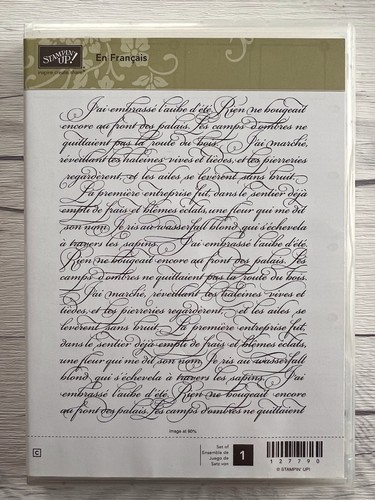 STAMPIN' UP!
imagine create share
En Français
J'ai embrassé l'aube d'été. Rien ne bougeait
encore au front des palais. Les camps d'ombres ne
quittaient pas la route du bois. J'ai marché,
réveillant les haleines vives et tièdes, et les pierreries
regardèrent, et les ailes se levèrent sans bruit.
La première entreprise fut, dans le sentier déjà
empli de frais et blêmes éclats, une fleur qui me dit
son nom. Je ris au wasserfall blond qui s'échevela
à travers les sapins. J'ai embrassé l'aube d'été.
Rien ne bougeait encore au front des palais. Les
camps d'ombres ne quittaient pas la route du bois.
J'ai marché, réveillant les haleines vives et
tièdes, et les pierreries regardèrent, et les ailes se
levèrent sans bruit. La première entreprise fut,
dans le sentier déjà empli de frais et blêmes éclats,
une fleur qui me dit son nom. Je ris au wasserfall
blond qui s'échevela à travers les sapins. J'ai
embrassé l'aube d'été. Rien ne bougeait encore
au front des palais. Les camps d'ombres ne quittaient
image at 90%
C
Set of
Ensemble de
Juego de
Satz von
1
127790
© STAMPIN' UP!